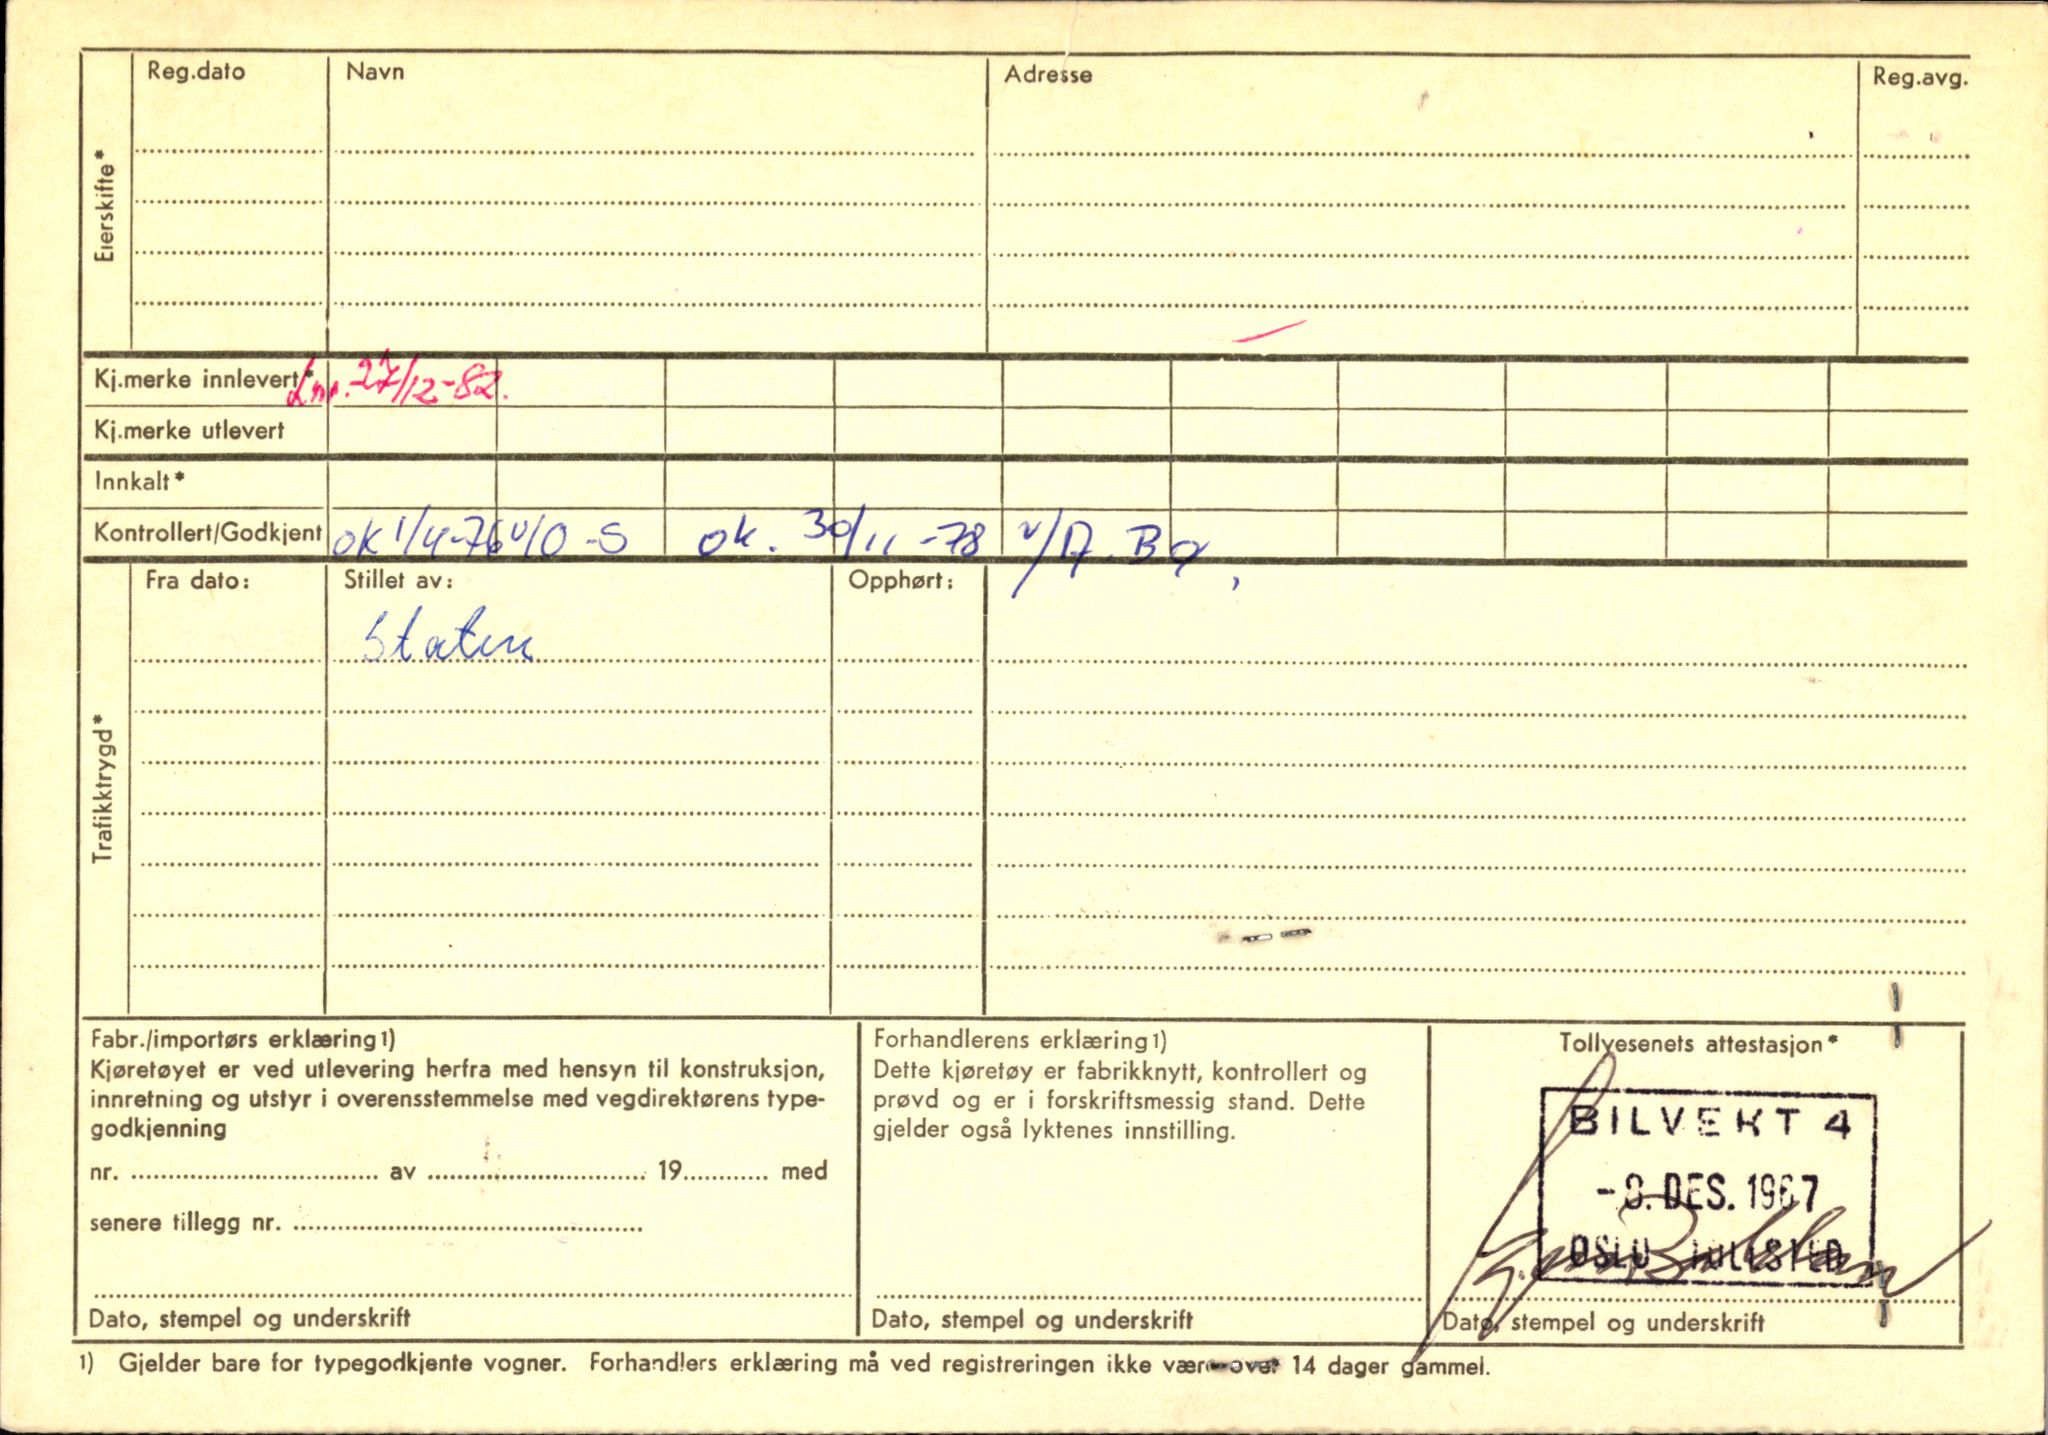 Eierskifte*
Reg.dato Navn Adresse Reg.avg.
Kj.merke innlevert* Lnr. 27/12-82.
Kj.merke utlevert
Innkalt*
Kontrollert/Godkjent ok 1/4-76 v/O-S ok. 30/11-78 v/A. Bø,
Trafikktrygd*
Fra dato: Stillet av: Opphørt:
Staten
Fabr./importørs erklæring 1)
Kjøretøyet er ved utlevering herfra med hensyn til konstruksjon,
innretning og utstyr i overensstemmelse med vegdirektørens type-
godkjenning
nr. av 19 med
senere tillegg nr.
Dato, stempel og underskrift
Forhandlerens erklæring 1)
Dette kjøretøy er fabrikknytt, kontrollert og
prøvd og er i forskriftsmessig stand. Dette
gjelder også lyktenes innstilling.
Dato, stempel og underskrift
Tollvesenets attestasjon*
BILVEKT 4
-8. DES. 1967
OSLO TOLLSTED
Dato, stempel og underskrift
1) Gjelder bare for typegodkjente vogner. Forhandlers erklæring må ved registreringen ikke være over 14 dager gammel.